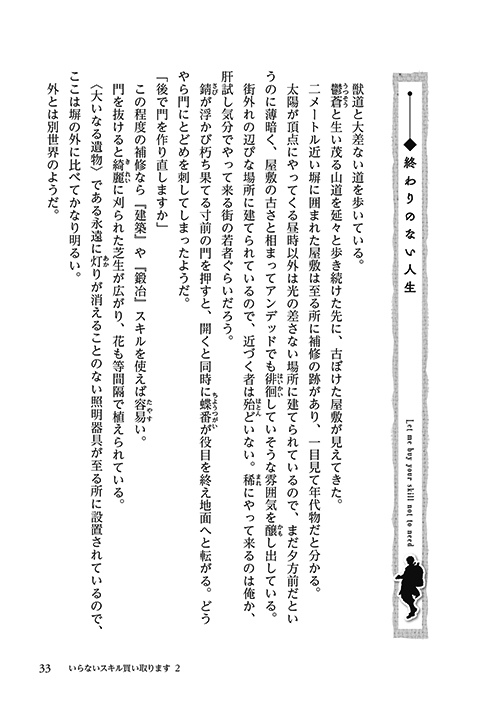 終わりのない人生
Let me buy your skill not to need
獣道と大差ない道を歩いている。
鬱蒼と生い茂る山道を延々と歩き続けた先に、古ぼけた屋敷が見えてきた。
二メートル近い塀に囲まれた屋敷は至る所に補修の跡があり、一目見て年代物だと分かる。
太陽が頂点にやってくる昼時以外は光の差さない場所に建てられているので、まだ夕方前だとい
うのに薄暗く、屋敷の古さと相まってアンデッドでも徘徊していそうな雰囲気を醸し出している。
街外れの辺ぴな場所に建てられているので、近づく者は殆どいない。稀にやって来るのは俺か、
肝試し気分でやって来る街の若者ぐらいだろう。
錆が浮かび朽ち果てる寸前の門を押すと、開くと同時に蝶番が役目を終え地面へと転がる。どう
やら門にとどめを刺してしまったようだ。
「後で門を作り直しますか」
この程度の補修なら『建築』や『鍛冶』スキルを使えば容易い。
門を抜けると綺麗に刈られた芝生が広がり、花も等間隔で植えられている。
〈大いなる遺物〉である永遠に灯りが消えることのない照明器具が至る所に設置されているので、
ここは塀の外に比べてかなり明るい。
外とは別世界のようだ。
33 いらないスキル買い取ります 2